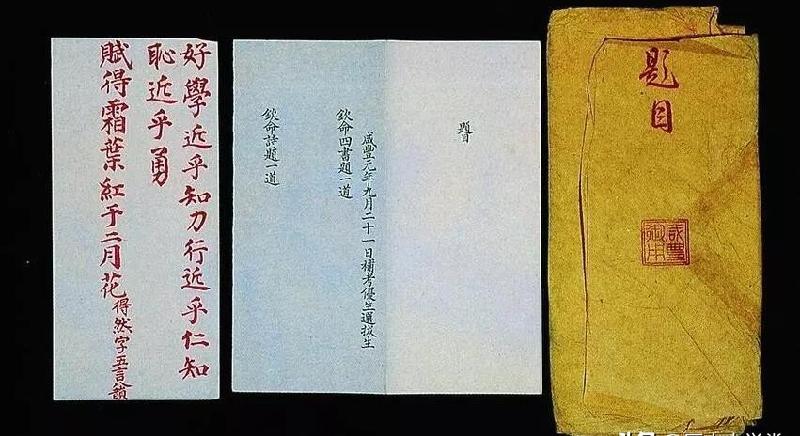 好學近乎知力行近乎仁知
恥近乎勇
賦得霜葉紅于二月花 得然字五言韻
題目
咸豐元年九月二十一日補考優生選拔生
欽命四書題一道
欽命詩題一道
題目
咸豐
御用